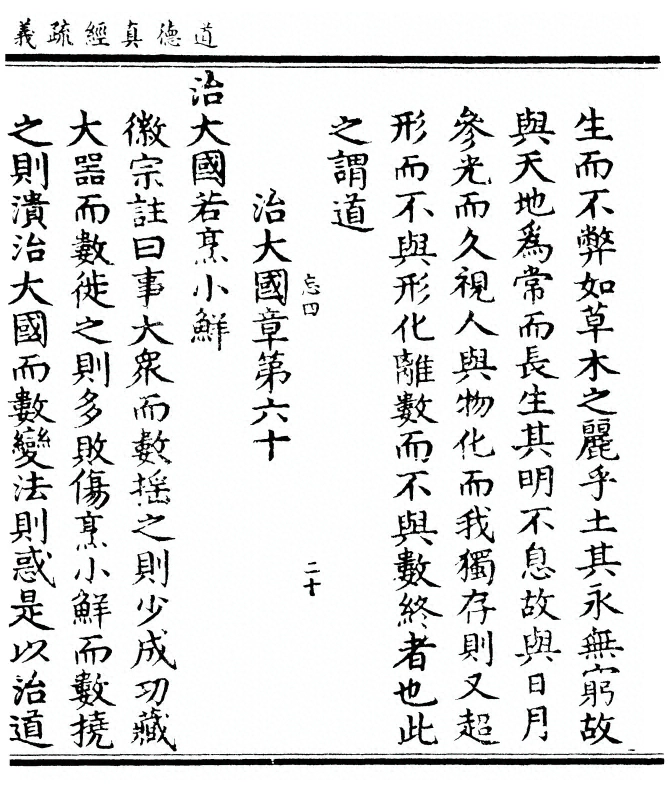 道德真經疏義
生而不弊如草木之麗乎土其永無窮故
與天地爲常而長生其明不息故與日月
參光而久視人與物化而我獨存則又超
形而不與形化離數而不與數終者也此
之謂道
忘四
二十
治大國章第六十
治大國若烹小鮮
徽宗註曰事大衆而數揺之則少成功藏
大器而數徙之則多敗傷烹小鮮而數撓
之則潰治大國而數變法則惑是以治道